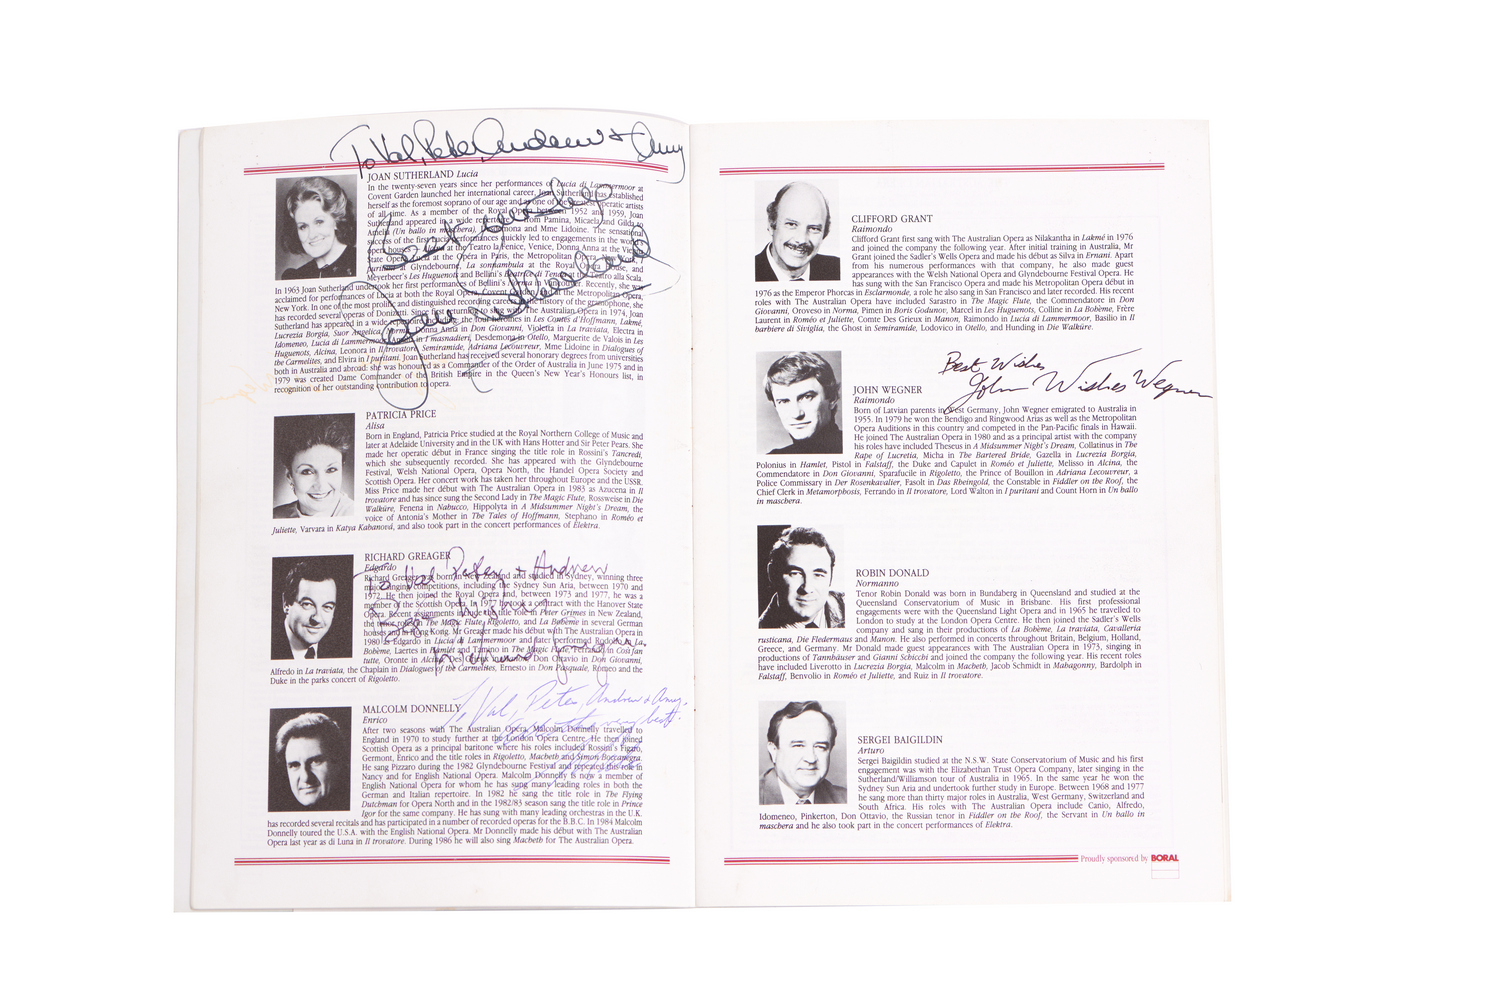 To Val, Peter, Andrew & Amy
JOAN SUTHERLAND Lucia
In the twenty-seven years since her performances of Lucia di Lammermoor at
Covent Garden launched her international career, Joan Sutherland has established
herself as the foremost soprano of our age and as one of the greatest operatic artists
of all time. As a member of the Royal Opera between 1952 and 1959, Joan
Sutherland appeared in a wide repertoire from Pamina, Micaela and Gilda to
Amelia (Un ballo in maschera), Desdemona and Mme Lidoine. The sensational
success of the first Lucia performances quickly led to engagements in the world's
opera houses – Alcina at the Teatro la Fenice, Venice, Donna Anna at the Vienna
State Opera, Lucia at the Opéra in Paris, the Metropolitan Opera, New York, I
puritani at Glyndebourne, La sonnambula at the Royal Opera House, and
Meyerbeer's Les Huguenots and Bellini's Beatrice di Tenda at the Teatro alla Scala.
In 1963 Joan Sutherland undertook her first performances of Bellini's Norma in Vancouver. Recently, she was
acclaimed for performances of Lucia at both the Royal Opera, Covent Garden, and at the Metropolitan Opera,
New York. In one of the most prolific and distinguished recording careers in the history of the gramophone, she
has recorded several operas of Donizetti. Since first returning to sing with The Australian Opera in 1974, Joan
Sutherland has appeared in a wide repertoire including the four heroines in Les Contes d'Hoffmann, Lakmé,
Lucrezia Borgia, Suor Angelica, Norma, Donna Anna in Don Giovanni, Violetta in La traviata, Electra in
Idomeneo, Lucia di Lammermoor, Amalia in I masnadieri, Desdemona in Otello, Marguerite de Valois in Les
Huguenots, Alcina, Leonora in Il trovatore, Semiramide, Adriana Lecouvreur, Mme Lidoine in Dialogues of
the Carmelites, and Elvira in I puritani. Joan Sutherland has received several honorary degrees from universities
both in Australia and abroad: she was honoured as a Commander of the Order of Australia in June 1975 and in
1979 was created Dame Commander of the British Empire in the Queen's New Year's Honours list, in
recognition of her outstanding contribution to opera.
Best wishes
Joan Sutherland
PATRICIA PRICE
Alisa
Born in England, Patricia Price studied at the Royal Northern College of Music and
later at Adelaide University and in the UK with Hans Hotter and Sir Peter Pears. She
made her operatic début in France singing the title role in Rossini's Tancredi,
which she subsequently recorded. She has appeared with the Glyndebourne
Festival, Welsh National Opera, Opera North, the Handel Opera Society and
Scottish Opera. Her concert work has taken her throughout Europe and the USSR.
Miss Price made her début with The Australian Opera in 1983 as Azucena in Il
trovatore and has since sung the Second Lady in The Magic Flute, Rossweise in Die
Walküre, Fenena in Nabucco, Hippolyta in A Midsummer Night's Dream, the
voice of Antonia's Mother in The Tales of Hoffmann, Stephano in Roméo et
Juliette, Varvara in Katya Kabanová, and also took part in the concert performances of Elektra.
RICHARD GREAGER
Edgardo
Richard Greager was born in New Zealand and studied in Sydney, winning three
major singing competitions, including the Sydney Sun Aria, between 1970 and
1972. He then joined the Royal Opera and, between 1973 and 1977, he was a
member of the Scottish Opera. In 1977 he took a contract with the Hanover State
Opera. Recent assignments include the title role in Peter Grimes in New Zealand,
the tenor roles in The Magic Flute, Rigoletto, and La Bohème in several German
houses and in Hong Kong. Mr Greager made his début with The Australian Opera in
1980 as Edgardo in Lucia di Lammermoor and later performed Rodolfo in La
Bohème, Laertes in Hamlet and Tamino in The Magic Flute, Ferrando in Così fan
tutte, Oronte in Alcina, Des Grieux in Manon, Don Ottavio in Don Giovanni,
Alfredo in La traviata, the Chaplain in Dialogues of the Carmelites, Ernesto in Don Pasquale, Roméo and the
Duke in the parks concert of Rigoletto.
To Val Peter + Andrew
Best Wishes
Richard Greager.
MALCOLM DONNELLY
Enrico
After two seasons with The Australian Opera, Malcolm Donnelly travelled to
England in 1970 to study further at the London Opera Centre. He then joined
Scottish Opera as a principal baritone where his roles included Rossini's Figaro,
Germont, Enrico and the title roles in Rigoletto, Macbeth and Simon Boccanegra.
He sang Pizzaro during the 1982 Glyndebourne Festival and repeated this role in
Nancy and for English National Opera. Malcolm Donnelly is now a member of
English National Opera for whom he has sung many leading roles in both the
German and Italian repertoire. In 1982 he sang the title role in The Flying
Dutchman for Opera North and in the 1982/83 season sang the title role in Prince
Igor for the same company. He has sung with many leading orchestras in the U.K.
has recorded several recitals and has participated in a number of recorded operas for the B.B.C. In 1984 Malcolm
Donnelly toured the U.S.A. with the English National Opera. Mr Donnelly made his début with The Australian
Opera last year as di Luna in Il trovatore. During 1986 he will also sing Macbeth for The Australian Opera.
To Val, Peter, Andrew + Amy.
the very best.
CLIFFORD GRANT
Raimondo
Clifford Grant first sang with The Australian Opera as Nilakantha in Lakmé in 1976
and joined the company the following year. After initial training in Australia, Mr
Grant joined the Sadler's Wells Opera and made his début as Silva in Ernani. Apart
from his numerous performances with that company, he also made guest
appearances with the Welsh National Opera and Glyndebourne Festival Opera. He
has sung with the San Francisco Opera and made his Metropolitan Opera début in
1976 as the Emperor Phorcas in Esclarmonde, a role he also sang in San Francisco and later recorded. His recent
roles with The Australian Opera have included Sarastro in The Magic Flute, the Commendatore in Don
Giovanni, Oroveso in Norma, Pimen in Boris Godunov, Marcel in Les Huguenots, Colline in La Bohème, Frère
Laurent in Roméo et Juliette, Comte Des Grieux in Manon, Raimondo in Lucia di Lammermoor, Basilio in Il
barbiere di Siviglia, the Ghost in Semiramide, Lodovico in Otello, and Hunding in Die Walküre.
Best Wishes
John Wegner
JOHN WEGNER
Raimondo
Born of Latvian parents in West Germany, John Wegner emigrated to Australia in
1955. In 1979 he won the Bendigo and Ringwood Arias as well as the Metropolitan
Opera Auditions in this country and competed in the Pan-Pacific finals in Hawaii.
He joined The Australian Opera in 1980 and as a principal artist with the company
his roles have included Theseus in A Midsummer Night's Dream, Collatinus in The
Rape of Lucretia, Micha in The Bartered Bride, Gazella in Lucrezia Borgia,
Polonius in Hamlet, Pistol in Falstaff, the Duke and Capulet in Roméo et Juliette, Melisso in Alcina, the
Commendatore in Don Giovanni, Sparafucile in Rigoletto, the Prince of Bouillon in Adriana Lecouvreur, a
Police Commissary in Der Rosenkavalier, Fasolt in Das Rheingold, the Constable in Fiddler on the Roof, the
Chief Clerk in Metamorphosis, Ferrando in Il trovatore, Lord Walton in I puritani and Count Horn in Un ballo
in maschera.
ROBIN DONALD
Normanno
Tenor Robin Donald was born in Bundaberg in Queensland and studied at the
Queensland Conservatorium of Music in Brisbane. His first professional
engagements were with the Queensland Light Opera and in 1965 he travelled to
London to study at the London Opera Centre. He then joined the Sadler's Wells
company and sang in their productions of La Bohème, La traviata, Cavalleria
rusticana, Die Fledermaus and Manon. He also performed in concerts throughout Britain, Belgium, Holland,
Greece, and Germany. Mr Donald made guest appearances with The Australian Opera in 1973, singing in
productions of Tannhäuser and Gianni Schicchi and joined the company the following year. His recent roles
have included Liverotto in Lucrezia Borgia, Malcolm in Macbeth, Jacob Schmidt in Mahagonny, Bardolph in
Falstaff, Benvolio in Roméo et Juliette, and Ruiz in Il trovatore.
SERGEI BAIGILDIN
Arturo
Sergei Baigildin studied at the N.S.W. State Conservatorium of Music and his first
engagement was with the Elizabethan Trust Opera Company, later singing in the
Sutherland/Williamson tour of Australia in 1965. In the same year he won the
Sydney Sun Aria and undertook further study in Europe. Between 1968 and 1977
he sang more than thirty major roles in Australia, West Germany, Switzerland and
South Africa. His roles with The Australian Opera include Canio, Alfredo,
Idomeneo, Pinkerton, Don Ottavio, the Russian tenor in Fiddler on the Roof, the Servant in Un ballo in
maschera and he also took part in the concert performances of Elektra.
Proudly sponsored by BORAL